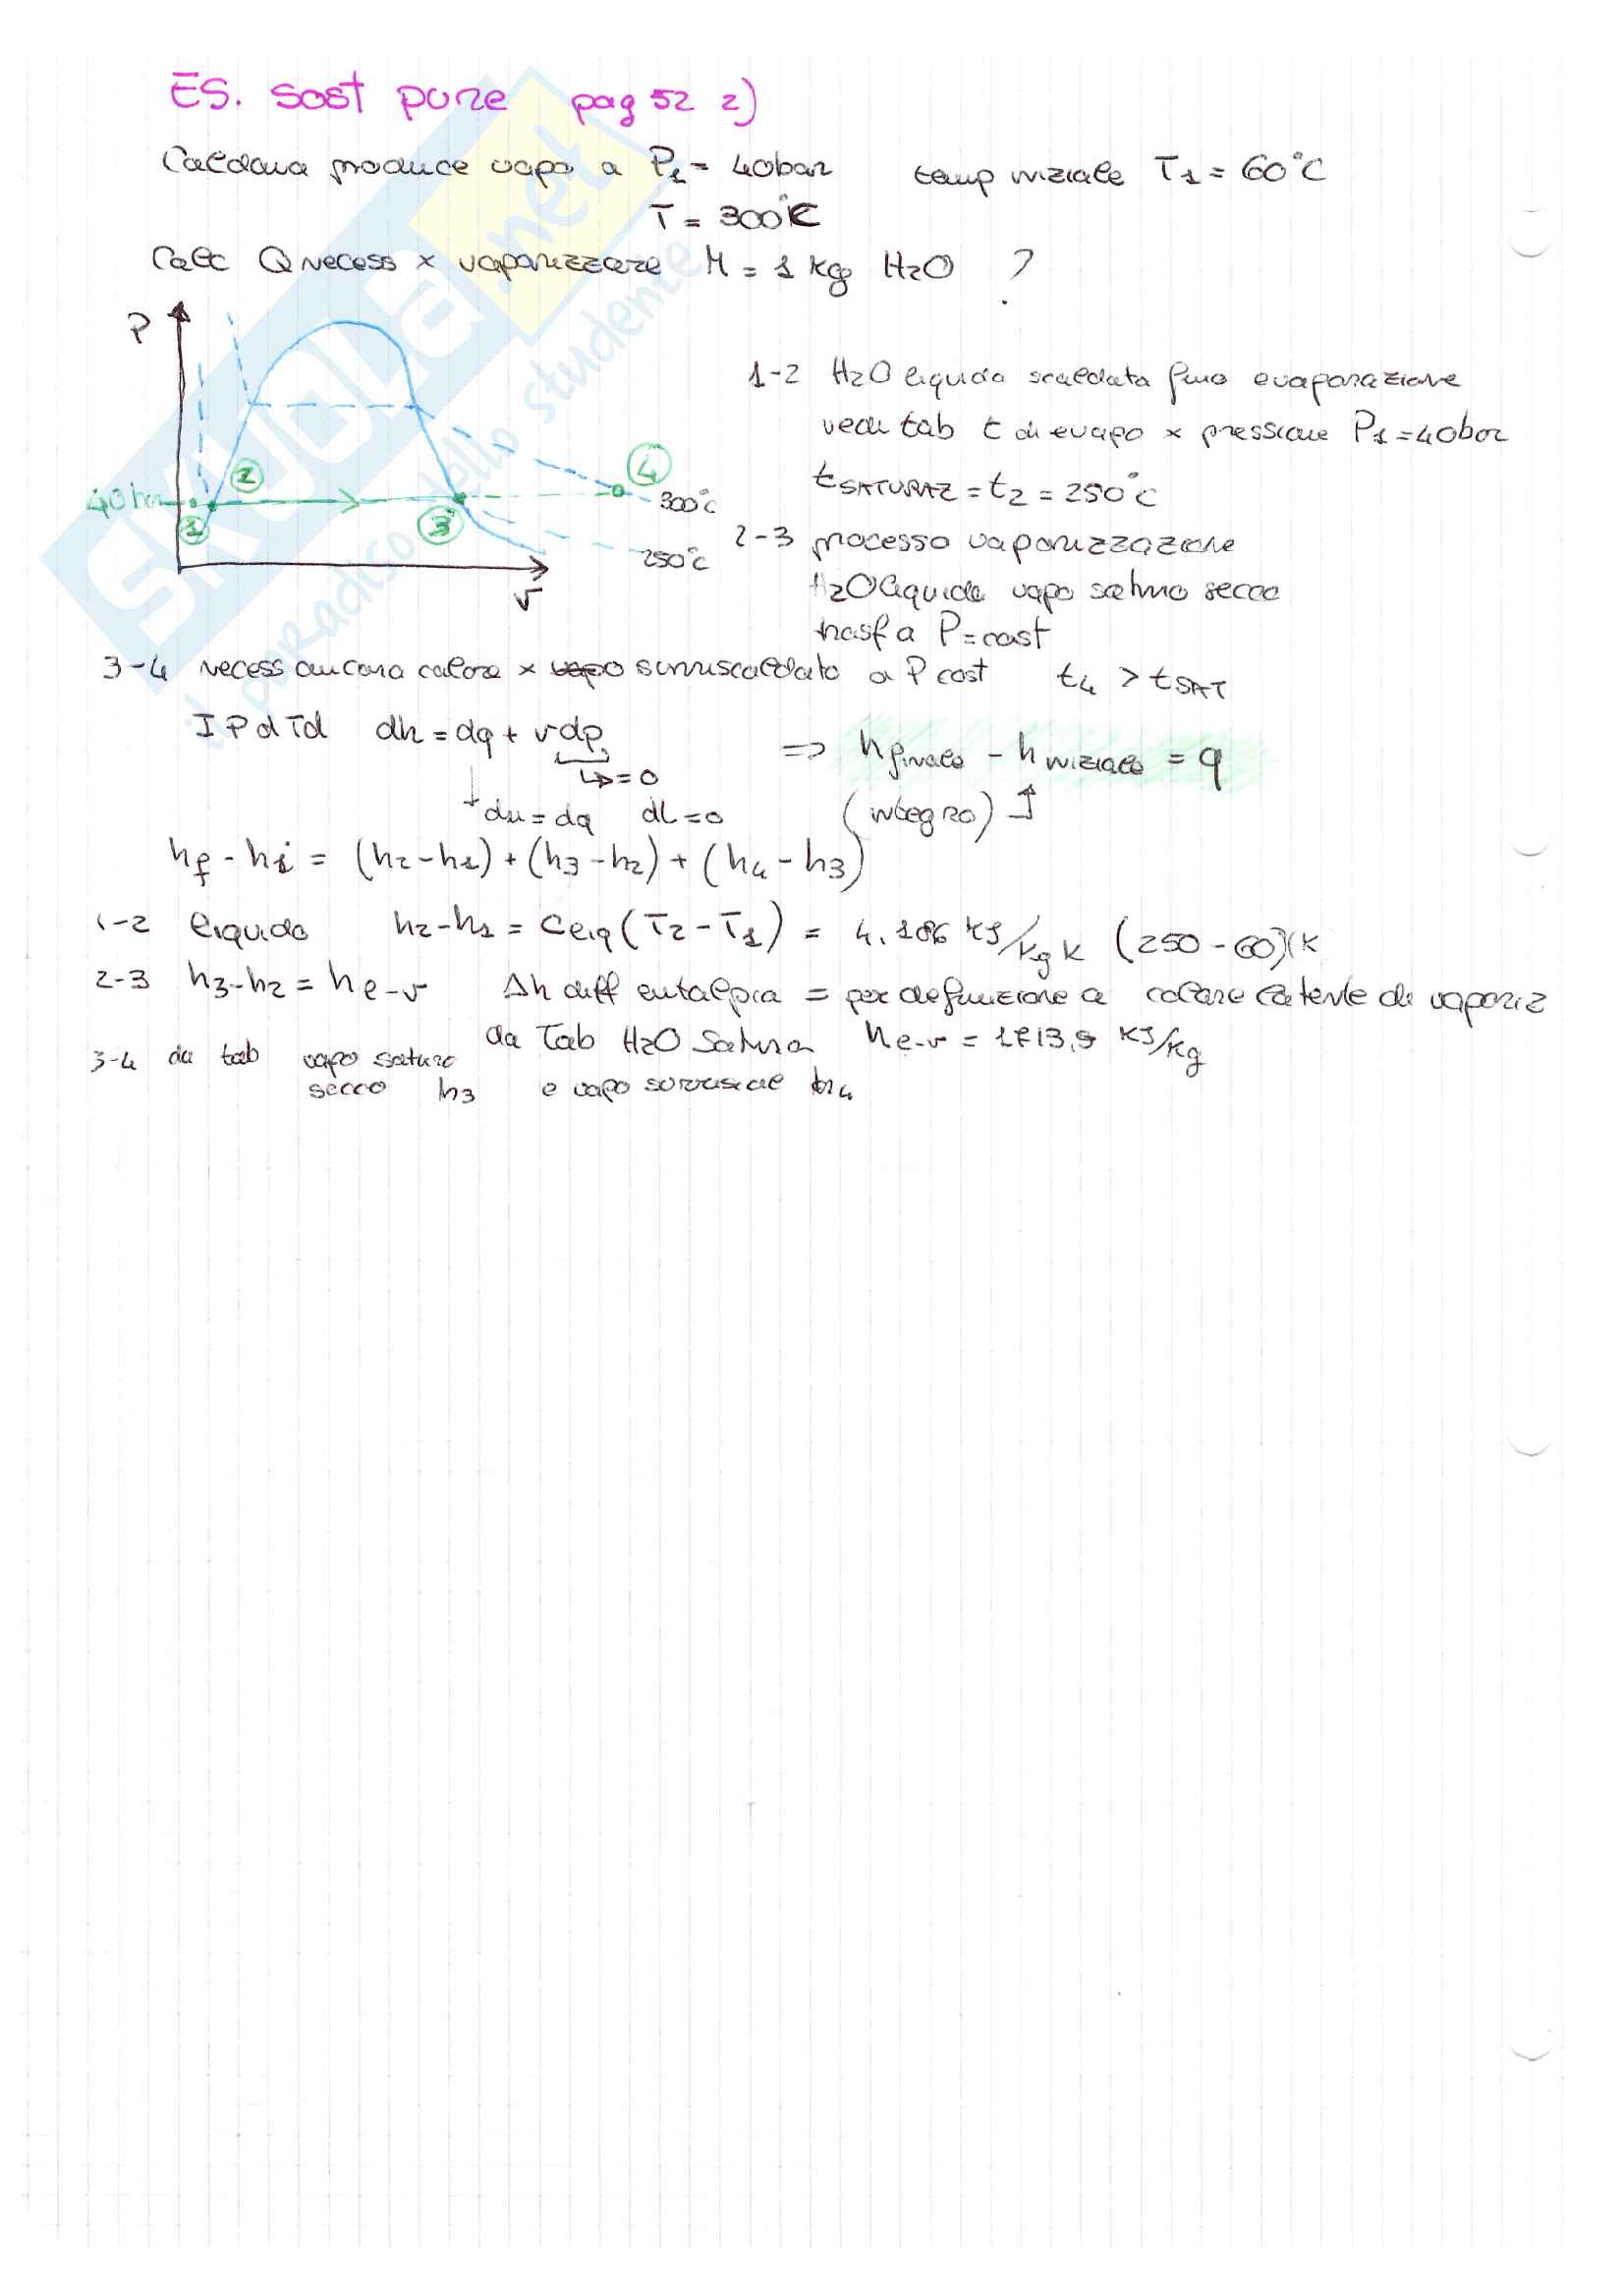 ES. sost pure pag 52 2)
Caldaia produce vapo a P1 = 40bar temp iniziale T1 = 60°C
T = 300°C
Calc Q necess x vaporizzare M = 1 kg H2O ?
P
40 bar
1
2
3
4
300°C
250°C
v
1-2 H2O liquida scaldata fino evaporazione
vedi tab t di evapo x pressione P1 = 40bar
tSATURAZ = t2 = 250°C
2-3 processo vaporizzazione
H2O liquida vapo saturo secco
trasf a P = cost
3-4 necess ancora calore x surriscaldato a P cost t4 > tSAT
I P d Td dh = dq + vdp => hfinale - hiniziale = q
↳ = 0
du = dq dL = 0 (integro)
hf - hi = (h2-h1) + (h3-h2) + (h4-h3)
1-2 liquido h2-h1 = Cliq (T2-T1) = 4,186 KJ/kg K (250-60)K
2-3 h3-h2 = hl-v Δh diff entalpia = per definizione a calore latente di vaporiz
da Tab H2O Satura hl-v = 1713,9 KJ/kg
3-4 da tab vapo saturo
secco h3 e vapo surriscal h4
SKUOLA.net
il paradiso dello studente